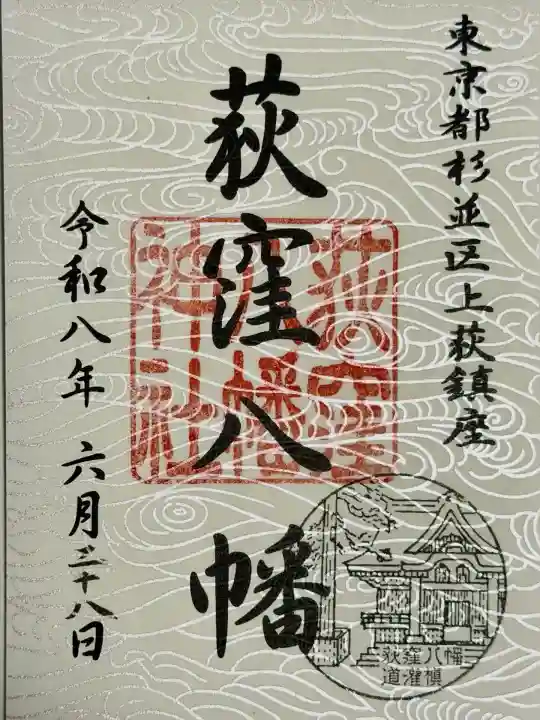 東京都杉並区上荻鎮座
荻窪八幡
荻窪
八幡
神社
令和八年 六月二十八日
荻窪八幡
道灌槇